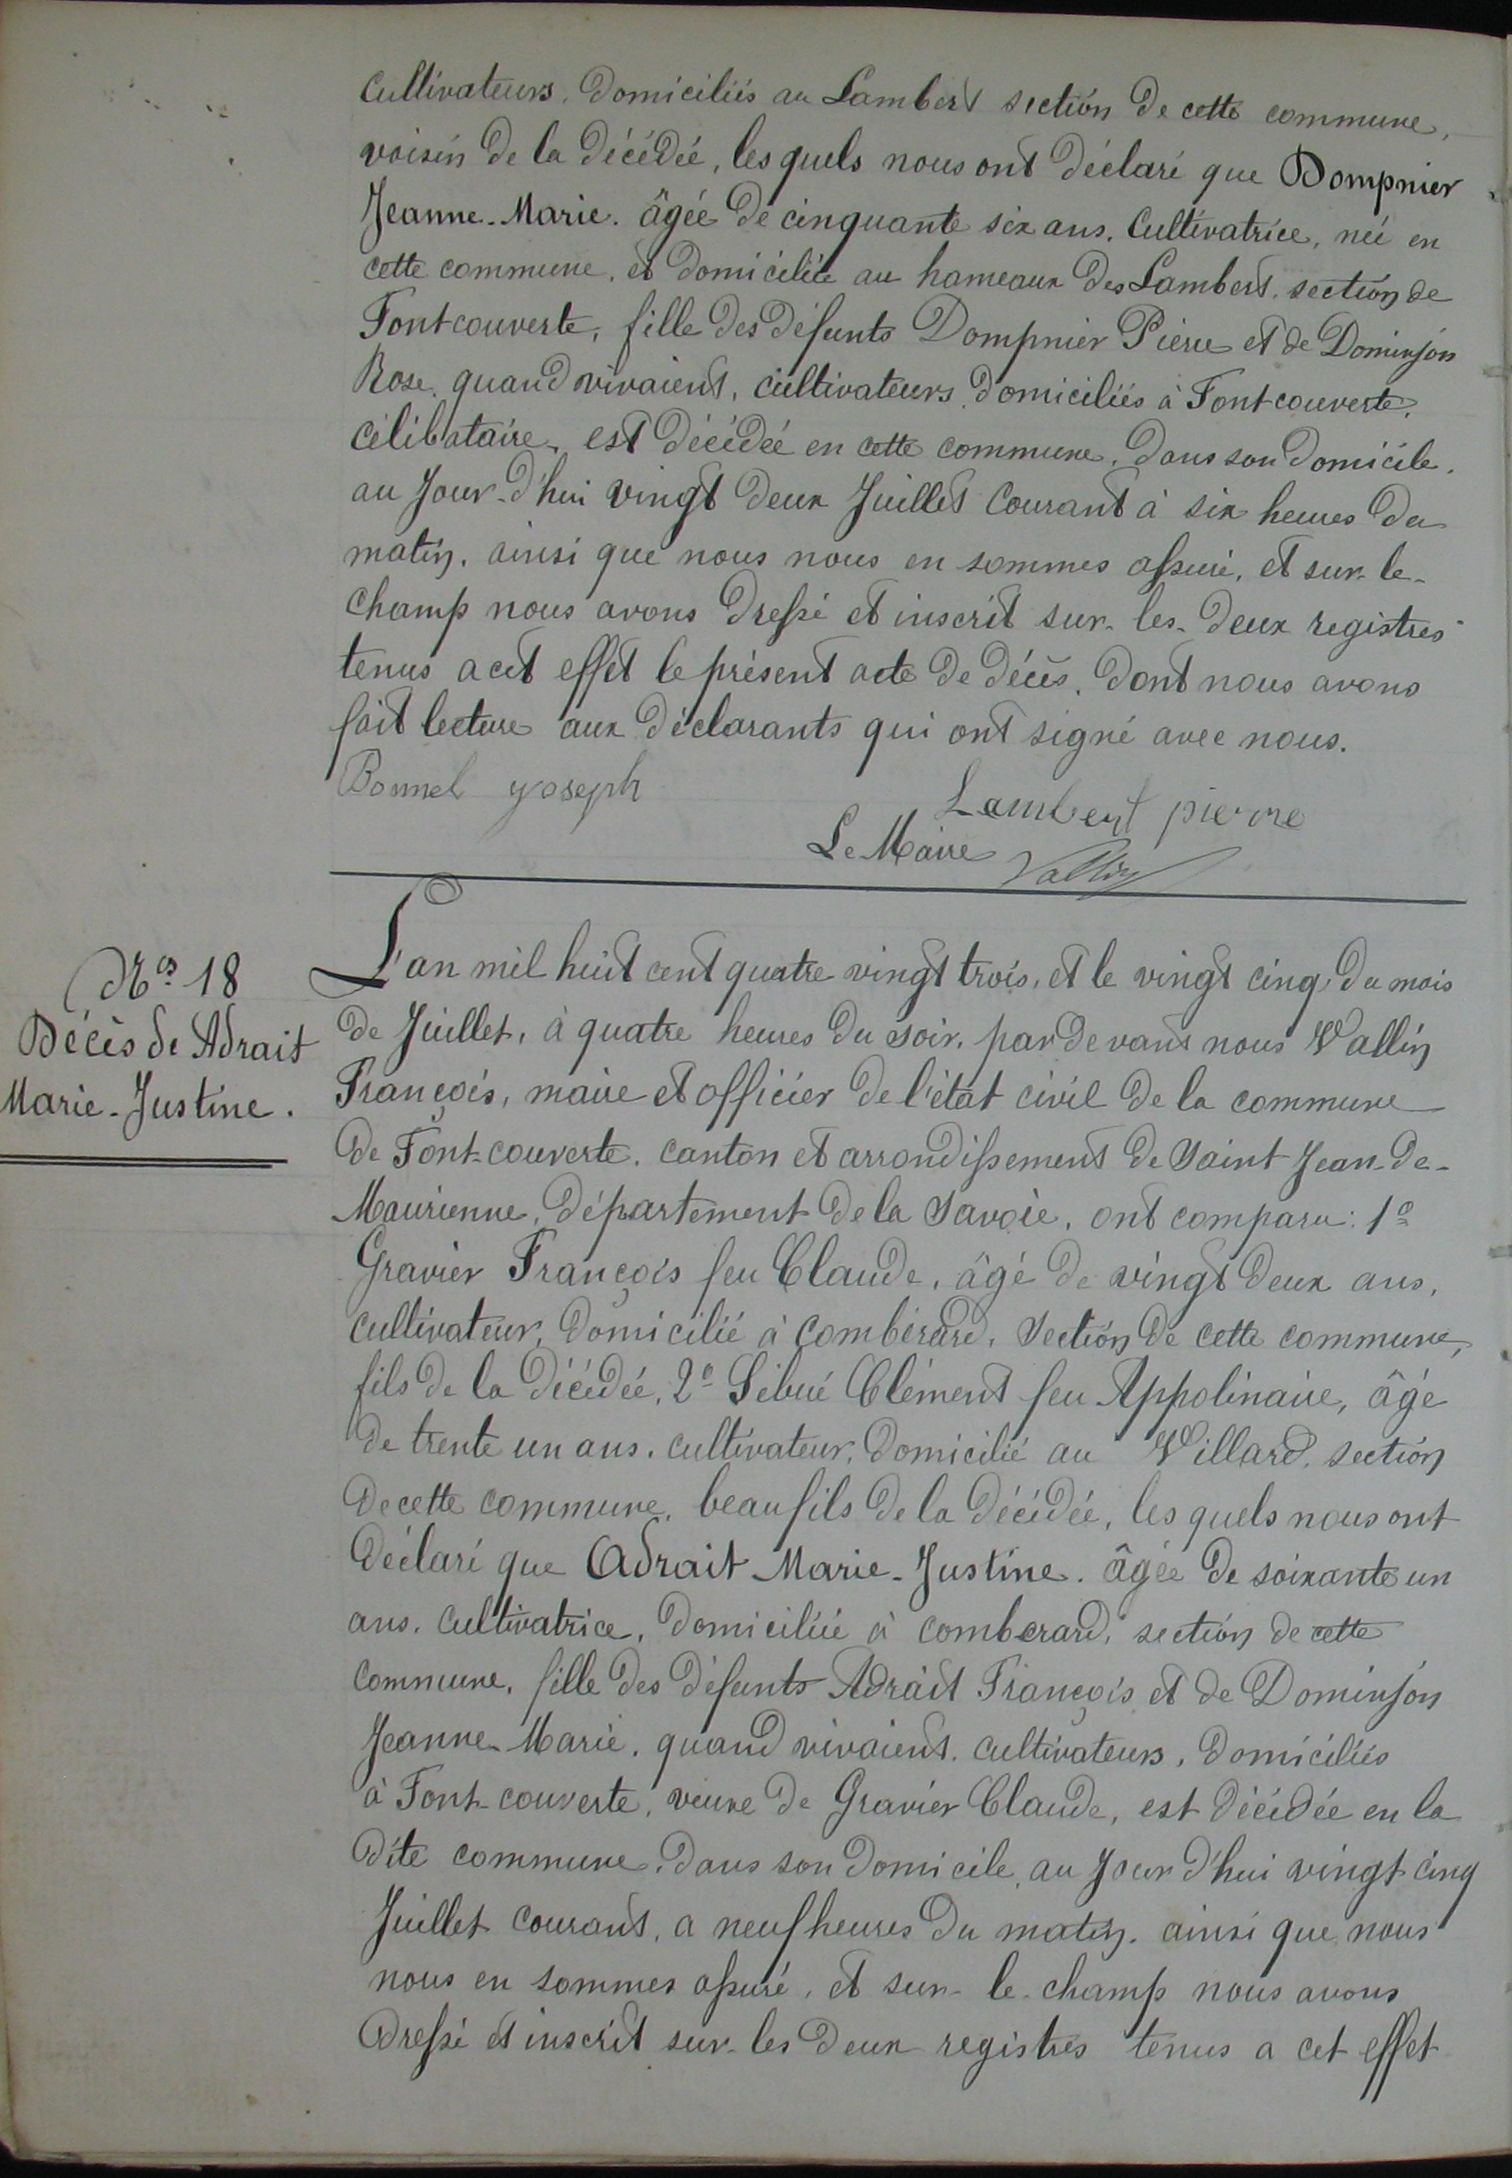 Cultivateurs, domiciliés au Lambert section de cette commune,
voisin de la décédée, les quels nous ont déclaré que Dompnier
Jeanne-Marie. âgée de cinquante six ans. Cultivatrice, née en
cette commune, et domiciliée au hameaux des Lambert, section de
Fontcouverte, fille des défunts Dompnier Pierre et de Dominjon
Rose, quand vivaient, cultivateurs, domiciliés à Fontcouverte,
célibataire, est décédée en cette commune, dans son domicile,
au Jour-d'hui vingt deux Juillet Courant à six heures du
matin, ainsi que nous nous en sommes assuré, et sur-le-
champ nous avons dressé et inscrit sur-les-deux registres
tenus a cet effet le présent acte de décès, dont nous avons
fait lecture aux déclarants qui ont signé avec nous.
Bonnel joseph
Lambert pierre
Le Maire Vallin
Nos 18
Décès de Adrait
Marie-Justine.
L'an mil huit cent quatre vingt trois, et le vingt cinq du mois
de Juillet, à quatre heures du soir, par devant nous Vallin
François, maire et officier de l'état civil de la commune
de Font-couverte, canton et arrondissement de Saint Jean-de-
Maurienne, département de la Savoie, ont comparu: 1o
Gravier François feu Claude, âgé de vingt deux ans,
cultivateur, domicilié à Combérard, Section de cette commune,
fils de la décédée, 2o Sibué Clément feu Appolinaire, âgé
de trente un ans, cultivateur, domicilié au Villard, section
de cette commune, beau fils de la décédée, les quels nous ont
déclaré que Adrait Marie-Justine. âgée de soixante un
ans. Cultivatrice, domiciliée à comberard, section de cette
commune, fille des défunts Adrait François et de Dominjon
Jeanne-Marie, quand vivaient, cultivateurs, domiciliés
à Font-couverte, veuve de Gravier Claude, est décédée en la
dite commune, dans son domicile, au Jour d'hui vingt cinq
Juillet courant, a neuf heures du matin, ainsi que nous
nous en sommes assuré, et sur-le-champ nous avons
dressé et inscrit sur-les deux registres tenus a cet effet